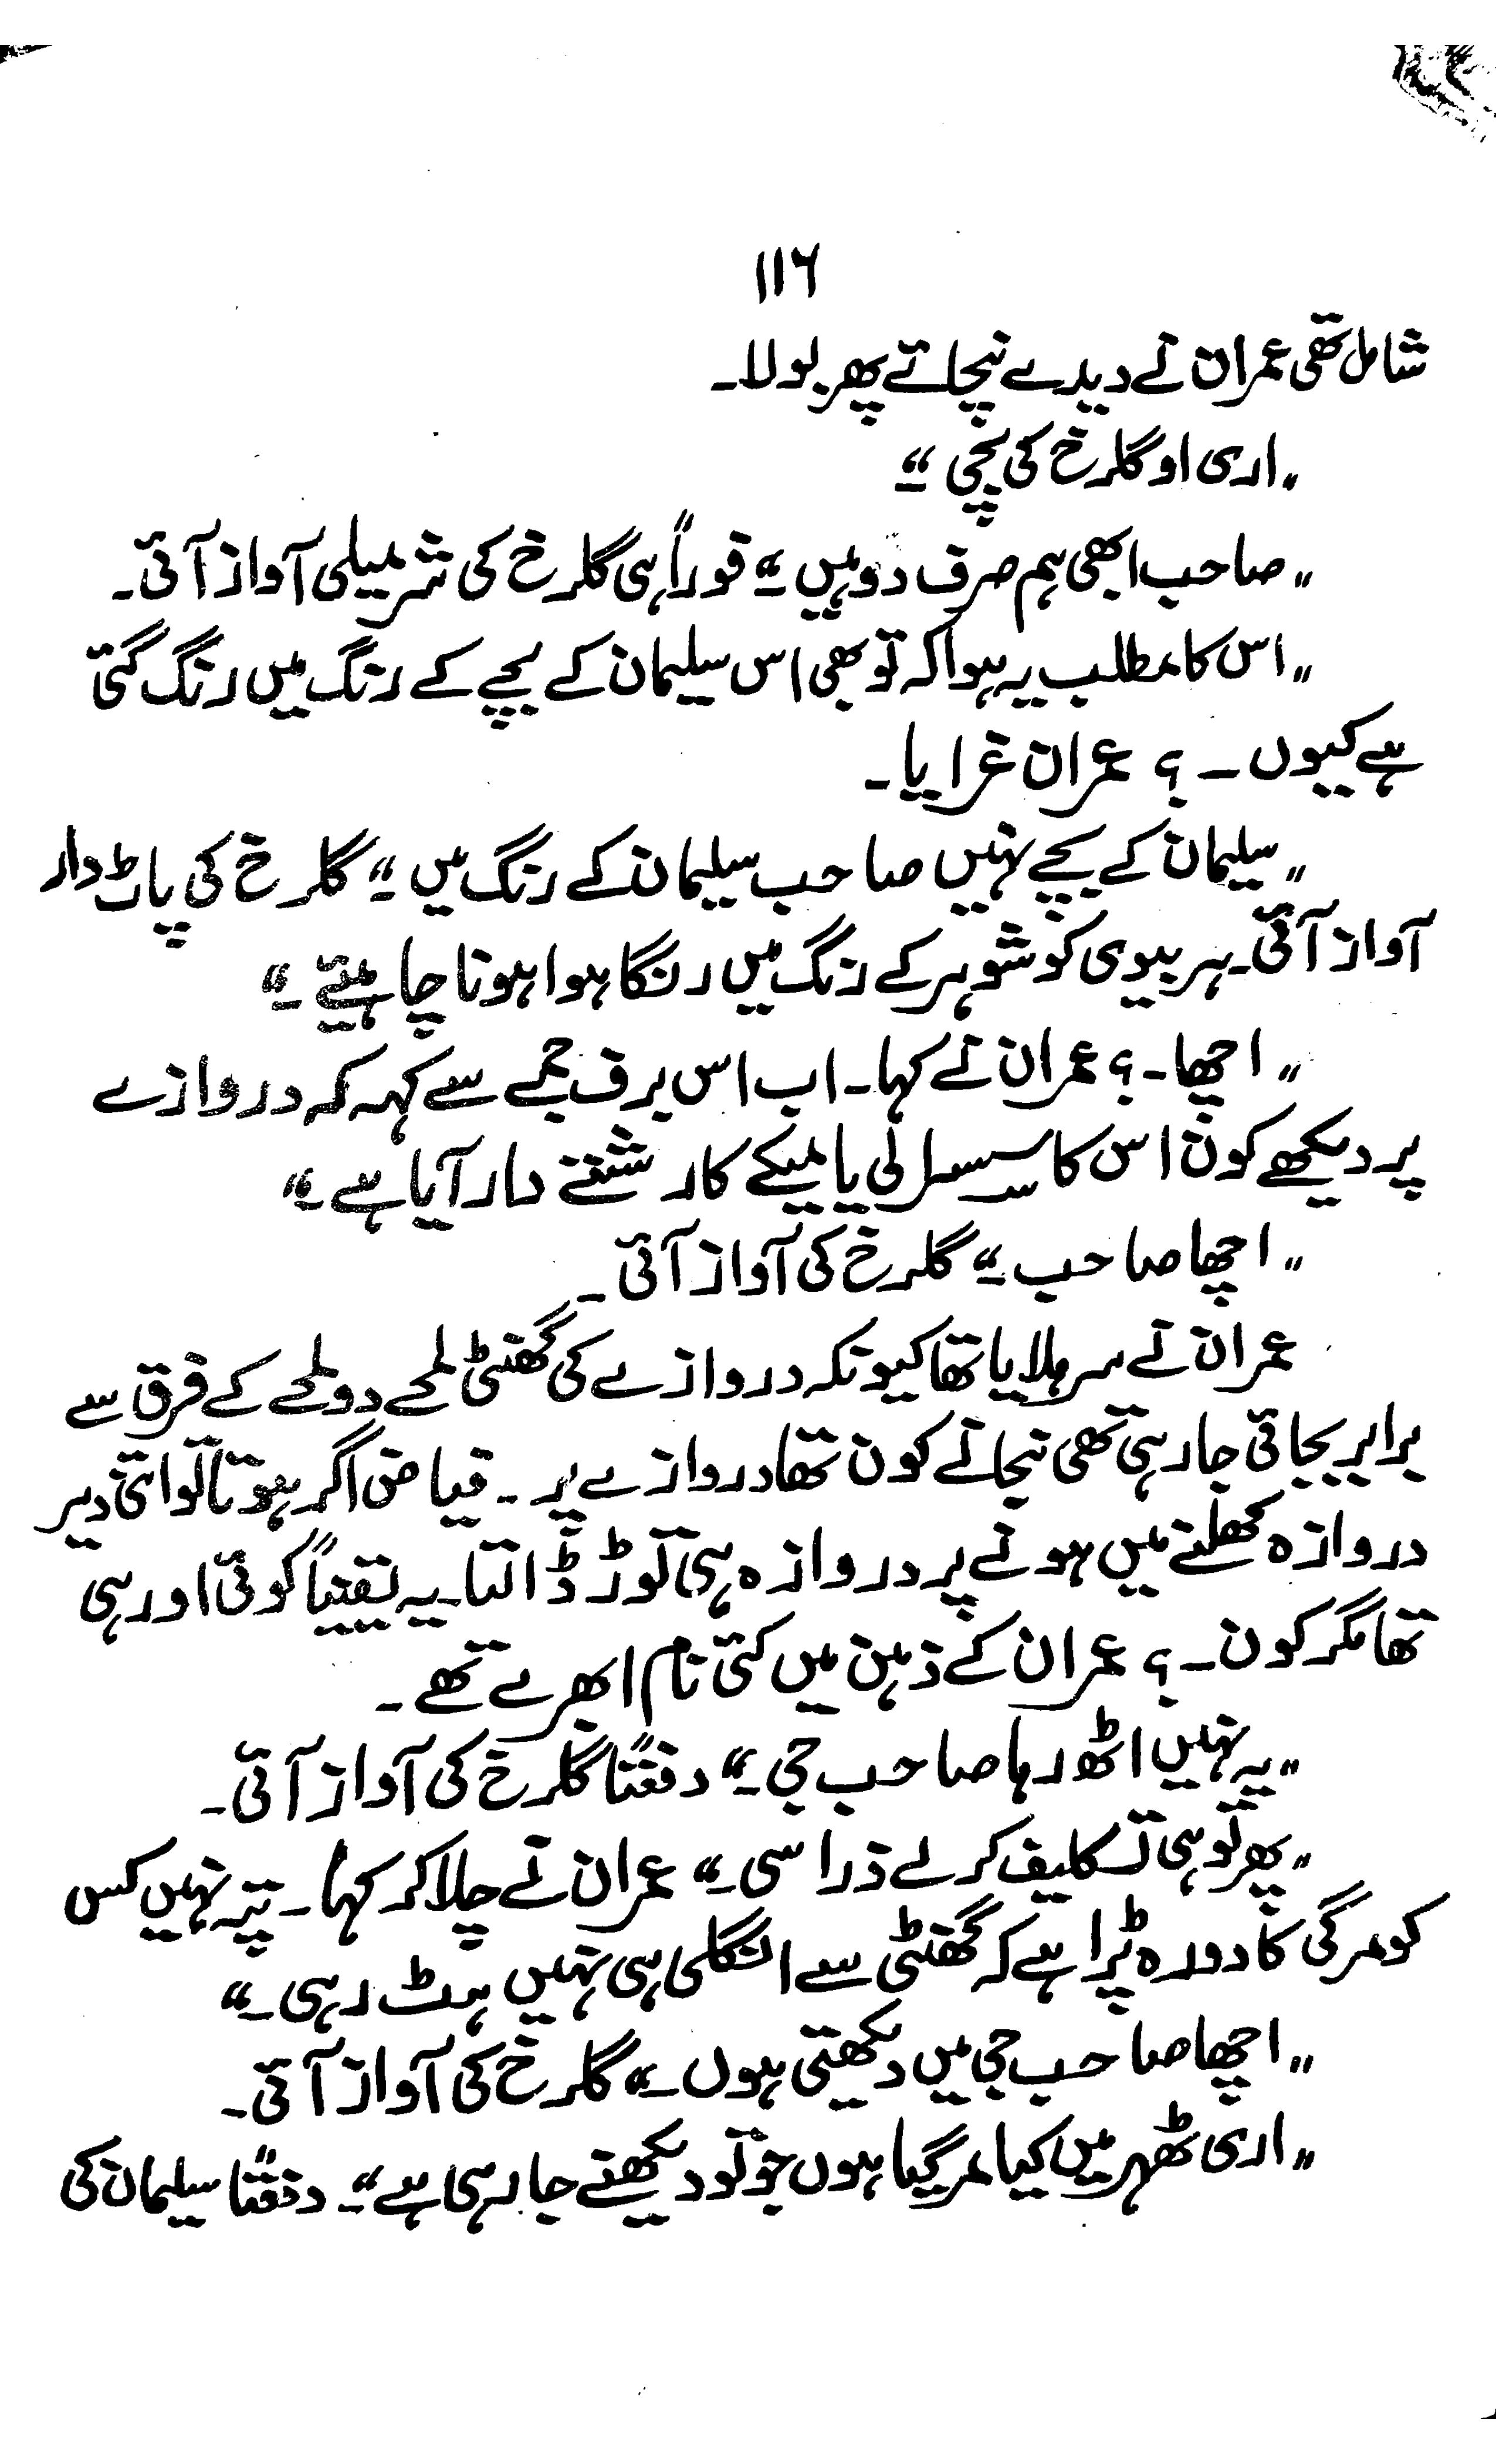 ۱۱۶
شامل تھی عمران نے دیدے نچائے پھر بولا۔
"اری او گلرخ کی بچی۔"
"صاحب ابھی ہم صرف دو ہیں۔" فوراً ہی گلرخ کی شرمیلی آواز آئی۔
"اس کا مطلب یہ ہوا کہ تو بھی اس سلیمان کے بچے کے رنگ میں رنگ گئی
ہے کیوں۔؟ عمران غرایا۔
"سلیمان کے بچے نہیں صاحب سلیمان کے رنگ میں۔" گلرخ کی پاٹ دار
آواز آئی۔ ہر بیوی کو شوہر کے رنگ میں رنگا ہوا ہونا چاہئیے۔"
"اچھا۔؟ عمران نے کہا۔ اب اس برف جمے سے کہہ کہ دروازے
پر دیکھے کون اس کا سسرالی یا میکے کا رشتے دار آیا ہے۔"
"اچھا صاحب۔" گلرخ کی آواز آئی۔
عمران نے سر ہلایا تھا کیونکہ دروازے کی گھنٹی لمحے دو لمحے کے فرق سے
برابر بجائی جا رہی تھی نجانے کون تھا دروازے پر۔ فیاض اگر ہوتا تو اتنی دیر
دروازہ کھلنے میں ہونے پر دروازہ ہی توڑ ڈالتا۔ یہ یقیناً کوئی اور ہی
تھا مگر کون۔؟ عمران کے ذہن میں کئی نام ابھرے تھے۔
"یہ نہیں اٹھ رہا صاحب جی۔" دفعتاً گلرخ کی آواز آئی۔
"پھر تو ہی تکلیف کر لے ذرا سی۔" عمران نے چلا کر کہا۔ پتہ نہیں کس
کو مرگی کا دورہ پڑا ہے کہ گھنٹی سے انگلی ہی نہیں ہٹ رہی۔"
"اچھا صاحب جی میں دیکھتی ہوں۔" گلرخ کی آواز آئی۔
"اری ٹھہر میں کیا مر گیا ہوں جو تو دیکھنے جا رہی ہے۔" دفعتاً سلیمان کی